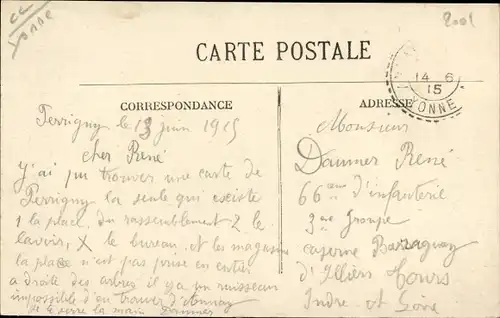 CC
Yonne
2001
CARTE POSTALE
14 - 6
15
YONNE
CORRESPONDANCE
ADRESSE
Perrigny le 13 juin 1915
cher René
j'ai pu trouver une carte de
Perrigny la seule qui existe
1 la place, du rassemblement 2 le
lavoir, X le bureau, et les magasins
la place n'est pas prise en entier
a droite des arbres il y a un ruisseau
impossible d'en trouver d'Annay
je te serre la main Daumer
Monsieur
Daumer René
66ème d'infanterie
3me Groupe
caserne Baraguay
d'Illiers Tours
Indre et Loire